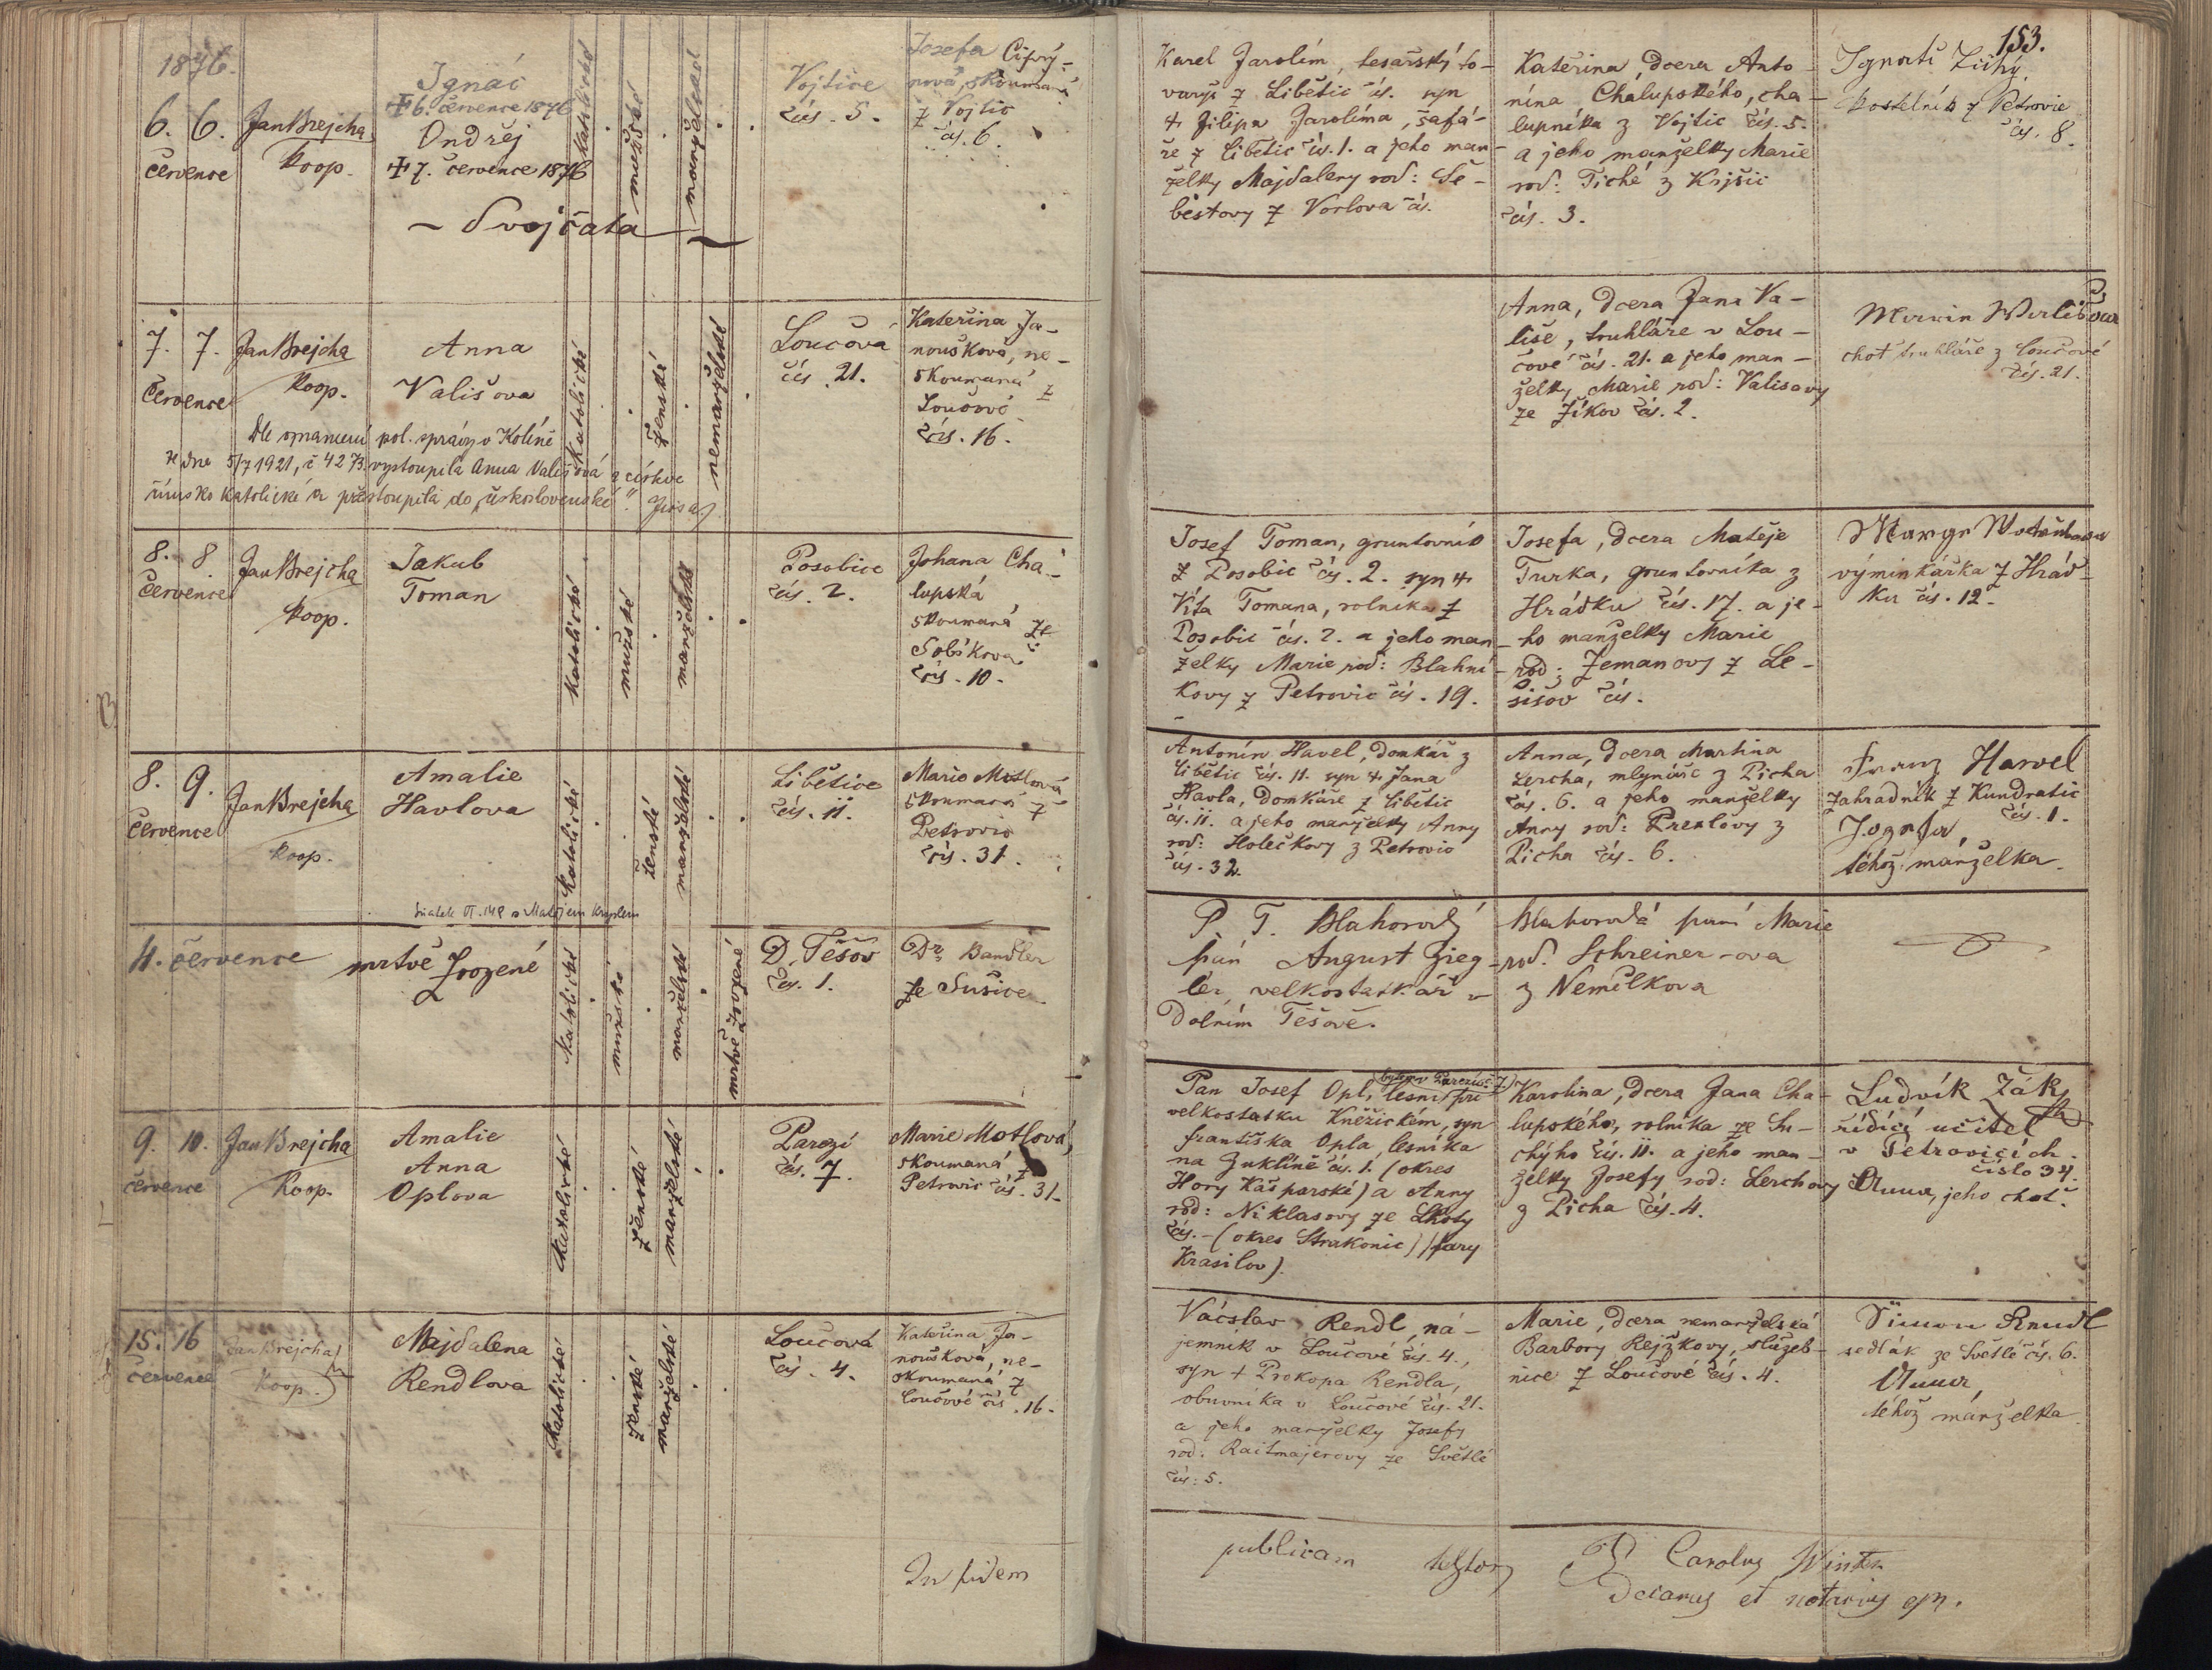 153.
1876.
6. 6.
července
Jan Brejcha
koop.
Ignác
+ 6. července 1876
Ondřej
+ 7. července 1876
– Dvojčata –
katolické
mužské
manželské
Vojtice
čís. 5.
Josefa Cifrý-
nová, skoumaná
z Vojtic
čís. 6.
Karel Jarolím, tesařský to-
varyš z Libětic čís. syn
+ Filipa Jarolíma, šafá-
ře z Libětic čís. 1. a jeho man-
želky Majdaleny rod: Še-
bestovy z Vorlova čís.
Kateřina, dcera Anto-
nína Chalupského, cha-
lupníka z Vojtic čís. 5.
a jeho manželky Marie
rod: Tiché z Krjšic
čís. 3.
kostelník z Petrovic
čís. 8.
7. 7.
července
Jan Brejcha
koop.
Anna
Vališova
Dle oznámení pol. správy v Kolíně
ze dne 5/7 1921, č 4273 vystoupila Anna Vališová z církve
římsko katolické a přestoupila do „československé“.
katolické
ženské
nemanželské
Loučova
čís. 21.
Kateřina Ja-
noušková, ne-
skoumaná z
Loučové
čís. 16.
Anna, dcera Jana Va-
liše, truhláře v Lou-
čové čís. 21. a jeho man-
želky Marie rod: Valisovy
ze Žíkov čís. 2.
choť truhláře z Loučové
čís. 21.
8. 8.
července
Jan Brejcha
koop.
Jakub
Toman
katolické
mužské
manželské
Posobice
čís. 2.
Johana Cha-
lupská
skoumaná ze
Soběkova
čís. 10.
Josef Toman, gruntovník
z Posobic čís. 2. syn +
Víta Tomana, rolníka z
Posobic čís. 2. a jeho man-
želky Marie rod: Blahní-
kovy z Petrovic čís. 19.
Josefa, dcera Matěje
Turka, gruntovníka z
Hrádku čís. 17. a je-
ho manželky Marie
rod: Zemanovy z Le-
sišov čís.
výminkářka z Hrád-
ku čís. 12.
8. 9.
července
Jan Brejcha
koop.
Amalie
Havlova
katolické
ženské
manželské
Libětice
čís. 11.
Marie Motlová
skoumaná z
Petrovic
čís. 31.
Antonín Havel, domkář z
Libětic čís. 11. syn + Jana
Havla, domkáře z Libětic
čís. 11. a jeho manželky Anny
rod: Holečkovy z Petrovic
čís. 32.
Anna, dcera Martina
Lercha, mlynáře z Picha
čís. 6. a jeho manželky
Anny rod: Prexlovy z
Picha čís. 6.
Franz Havel
zahradník z Kundratic
čís. 1.
téhož manželka.
4. července
mrtvě zrozené
katolické
mužské
manželské
mrtvě zrozené
D. Těšov
čís. 1.
Dr. Bandler
ze Sušice
P. T. Blahorodý
pán August Zieg-
ler, velkostatkář v
Dolním Těšově.
Blahorodá paní Marie
rod. Schreiner-ova
z Nemilkova
9. 10.
července
Jan Brejcha
koop.
Amalie
Anna
Oplova
katolické
ženské
manželské
Parezí
čís. 7.
Marie Motlová,
skoumaná z
Petrovic čís. 31.
Pan Josef Opl, lesní při
velkostatku Kněžickém, syn
Františka Opla lesníka
na Zuklíně čís. 1. (okres
Hory Kašparské) a Anny
rod: Niklasovy ze Lhoty
čís. – (okres Strakonic) (fary
Krasilov).
Karolina, dcera Jana Cha-
lupského, rolníka ze Su-
chýho čís. 11. a jeho man-
želky Josefy rod: Lerchovy
z Picha čís. 4.
Ludvík Žák
řídící učitel
v Petrovicích
číslo 34.
Anna, jeho choť.
15. 16
července
Jan Brejcha
koop.
Majdalena
Rendlova
katolické
ženské
manželské
Loučová
čís. 4.
Kateřina Ja-
noušková, ne-
skoumaná z
Loučové čís. 16.
Václav Rendl ná-
jemník v Loučové čís. 4.,
syn + Prokopa Rendla,
obuvníka v Loučové čís. 21.
a jeho manželky Josefy
rod: Raitmajerovy ze Světlé
čís: 5.
Marie, dcera nemanželská
Barbory Rejžkovy, služeb-
nice z Loučové čís. 4.
Šimon Rendl
sedlák ze Světlé čís. 6.
Anna,
téhož manželka.
In fidem
publicam testor
P. Carolus Winter
Decanus et notarius epp.